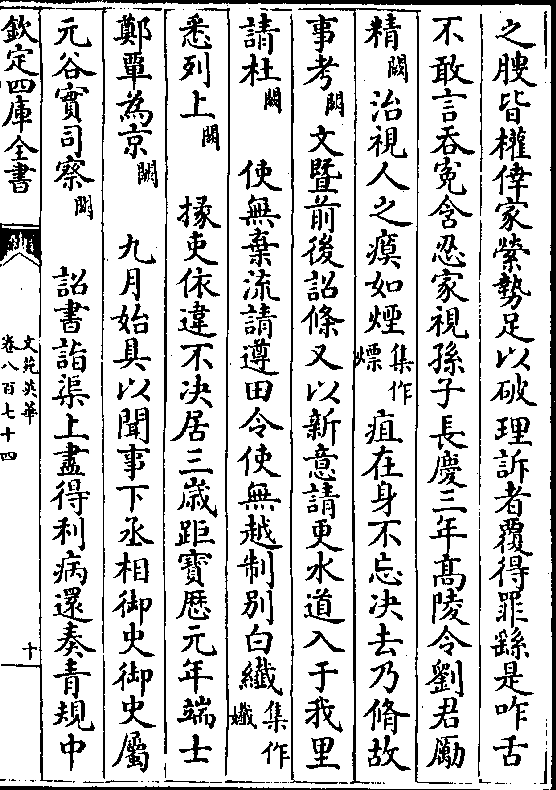 之腴皆權倖家榮勢足以破理訴者覆得罪繇是咋舌
不敢言吞寃含忍家視孫子長慶三年髙陵令劉君勵
精闕治視人之瘼如煙集作熛疽在身不忘決去乃脩故
事考闕文暨前後詔條又以新意請更水道入于我里
請杜闕使無棄流請遵田令使無越制別白纎集作孅
悉列上闕掾吏依違不決居三歳距寳歴元年端士
鄭覃為京闕九月始具以聞事下丞相御史御史屬
元谷實司察闕詔書詣渠上盡得利病還奏青規中
欽定四庫全書
文苑英華
卷八百七十四
十